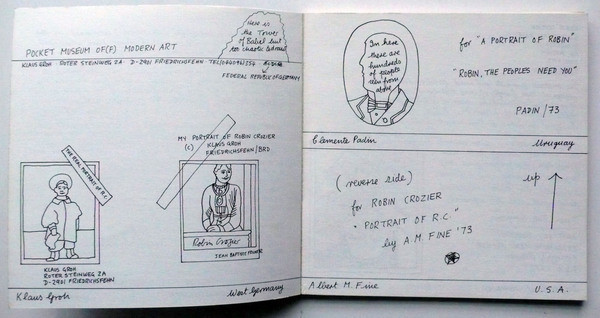 Here is
the Tower
of Babel but
too chaotic
POCKET MUSEUM OF(F) MODERN ART
KLAUS GROH RUTER STEINWEG 2A D-2901 FRIEDRICHSFEHN TEL/
FEDERAL REPUBLIK OF GERMANY
THE REAL PORTRAIT OF R.C.
MY PORTRAIT OF ROBIN CROZIER
(C) KLAUS GROH
FRIEDRICHSFEHN/BRD
Robin Crozier
JEAN BAPTISTE
KLAUS GROH
RUTER STEINWEG 2A
D-2901 FRIEDRICHSFEHN
Klaus Groh West Germany
In here
there are
hundreds
of people
seen from
above
for "A PORTRAIT OF ROBIN"
"ROBIN, THE PEOPLES NEED YOU"
PADIN /73
Clemente Padin Uruguay
(reverse side) up
for ROBIN CROZIER
"PORTRAIT OF R.C."
by A.M. FINE '73
Albert M. Fine U.S.A.